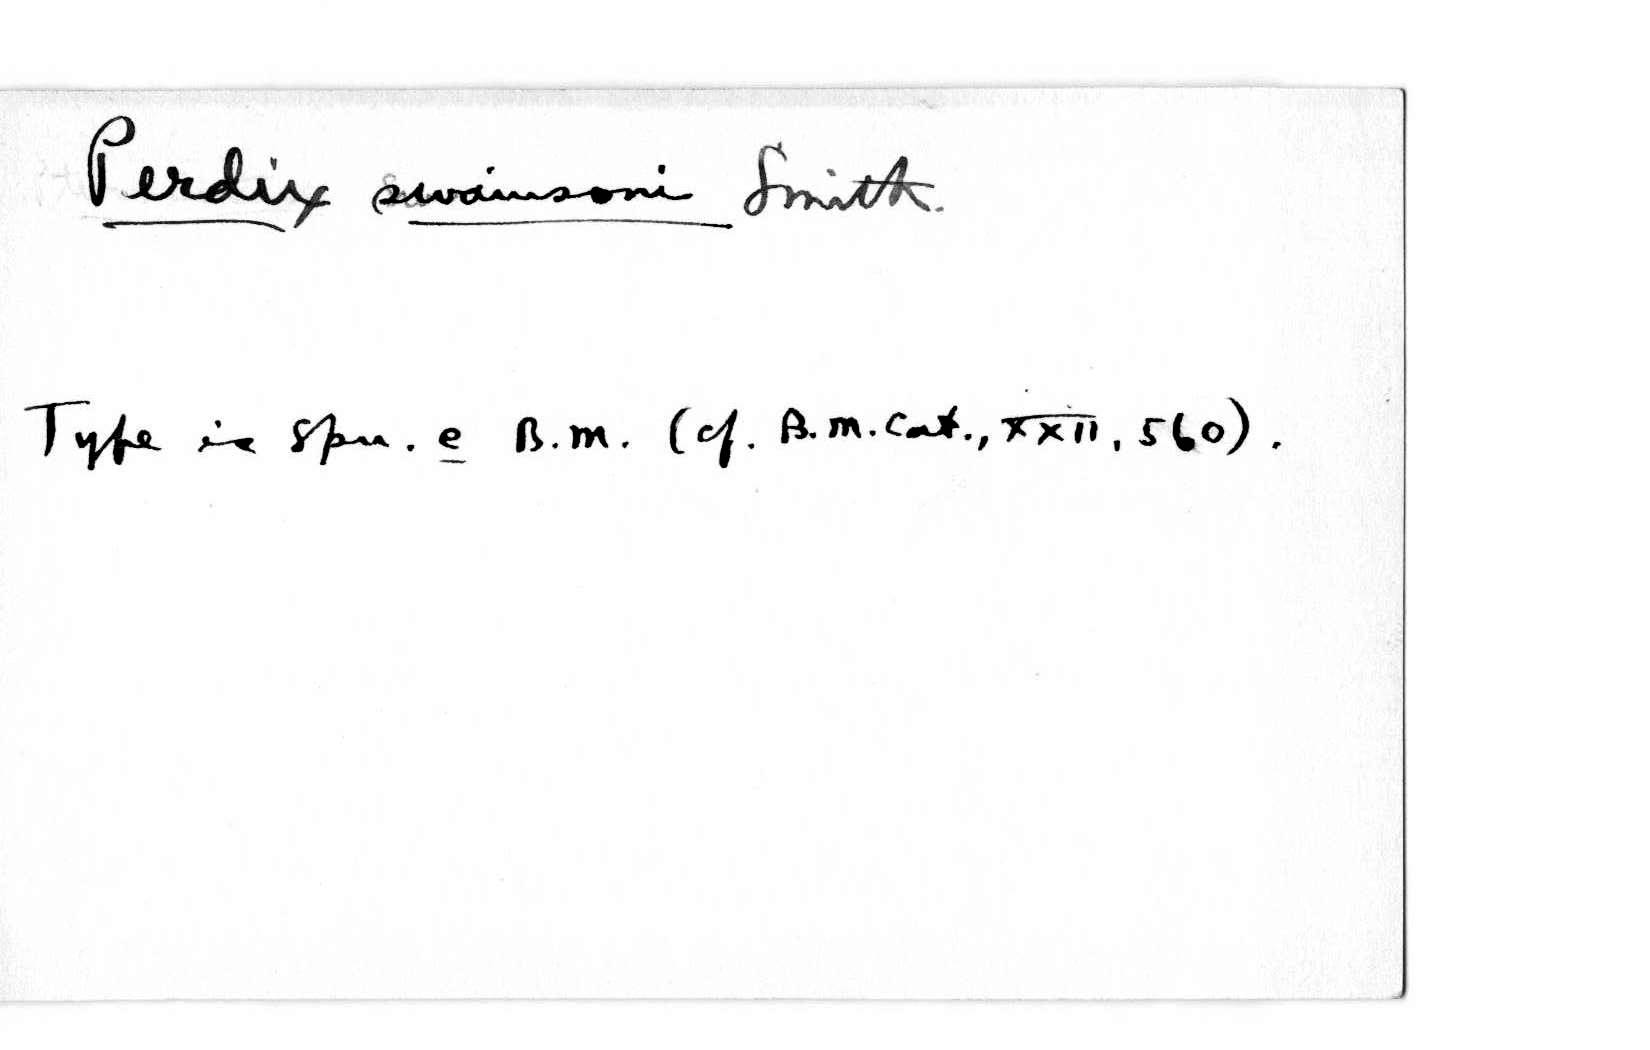 Perdix swainsoni Smith.
Type is spm. e B.M. (cf. B.M. Cat., XXII, 560).